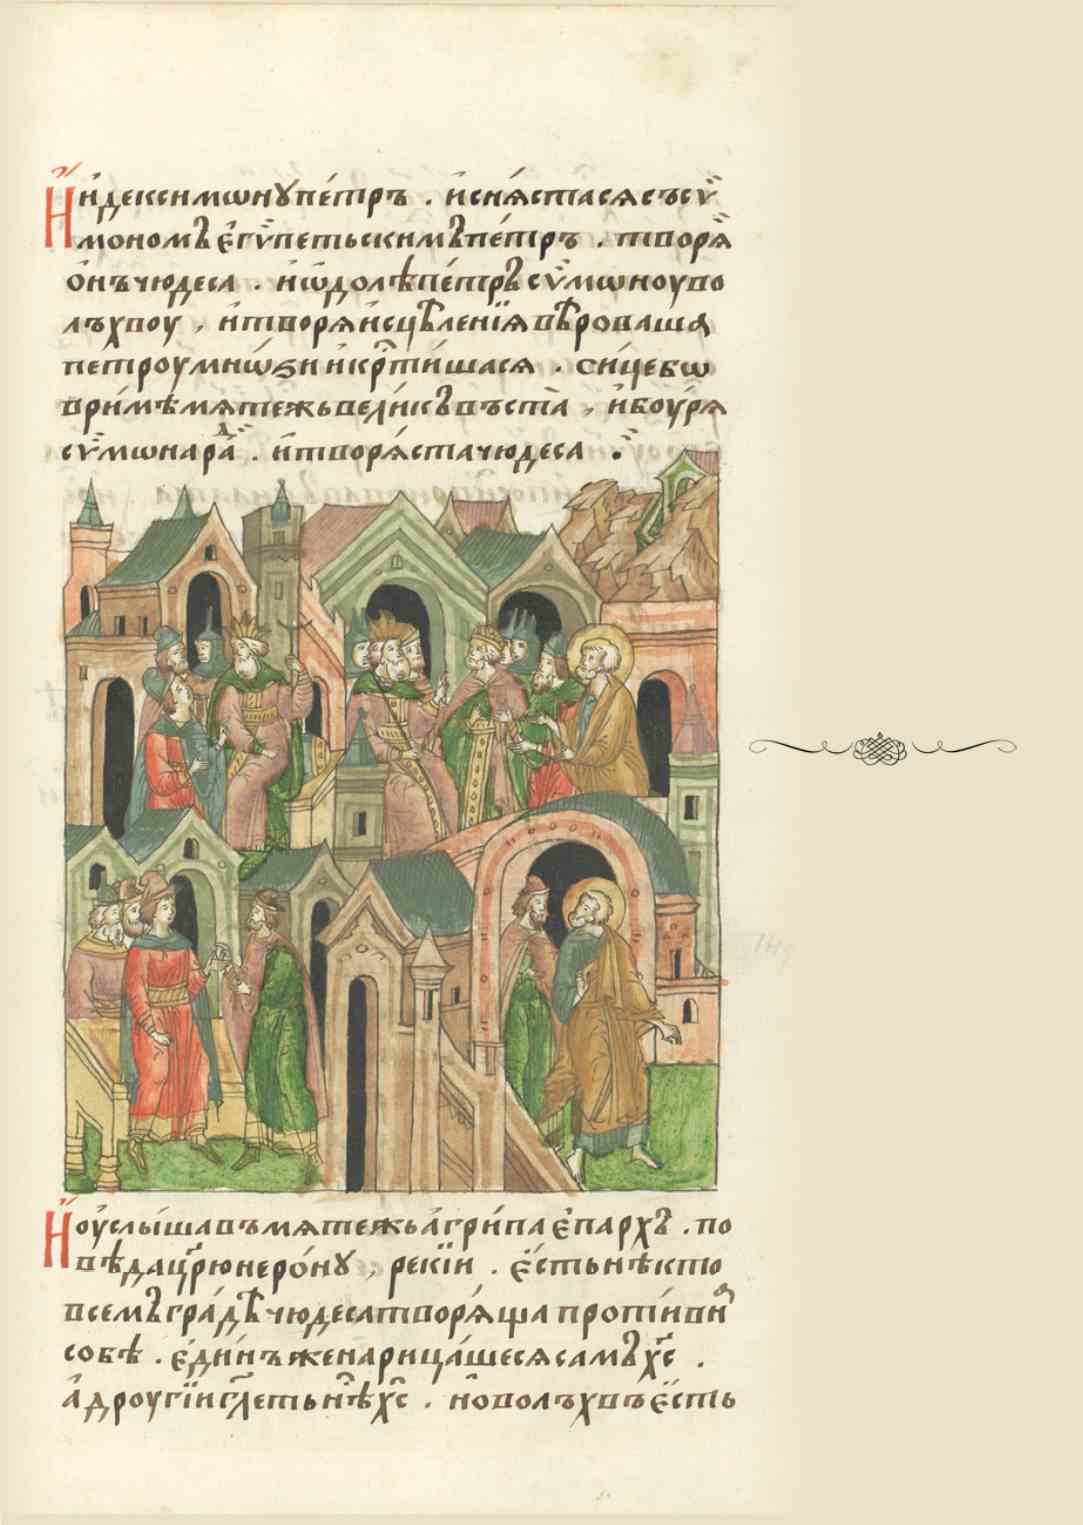 Ииде к симѡнꙋ пе́тръ . и҆ сн҄я́стася съ сѵ҆
мономъ є҆гѵ́петьскимъ пе́тръ . творя҆
ѻ҆нъ чюдеса . и҆ ѡ҆долѣ пе́тръ сѵ́мѡноу во
лъхвоу , и҆ творя и҆сцѣленїя вѣроваша
петроу мнѡ́ѕи и҆ кр҃ти́шася . си́це бѡ
в ри́мѣ мятежь вели́къ въста̀ , и҆боу́ря
сѵ́мѡна ра́д . и҆ творя́ста чюдеса .
И оу҆слы́шавъ мятежь а҆гри́па є҆пархъ . по
вѣда цр҃ю неро́нꙋ , рекїи . є҆́сть нѣкто
в семъ гра́дѣ чюдеса творя́ща проти́вня
собѣ . є҆ди́нъ же нарица́шеся самъ х҃с .
а҆ дроугїи гл҃еть нѣ́ х҃с . но̀ волъхвъ є҆́сть